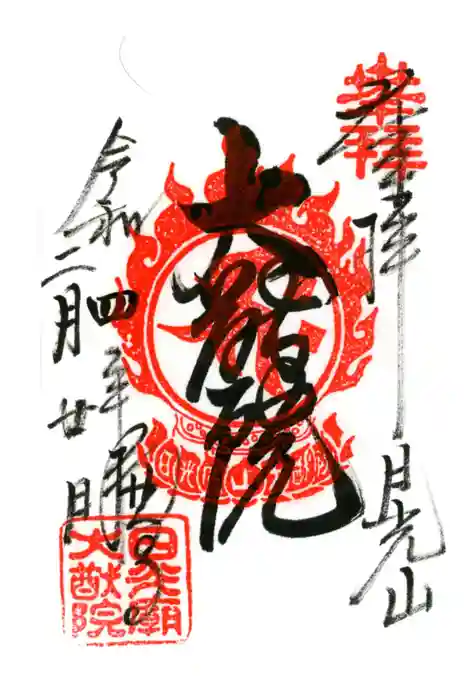 奉拝
日光山
大猷院
令和四年
二月廿日
家光廟
大猷院